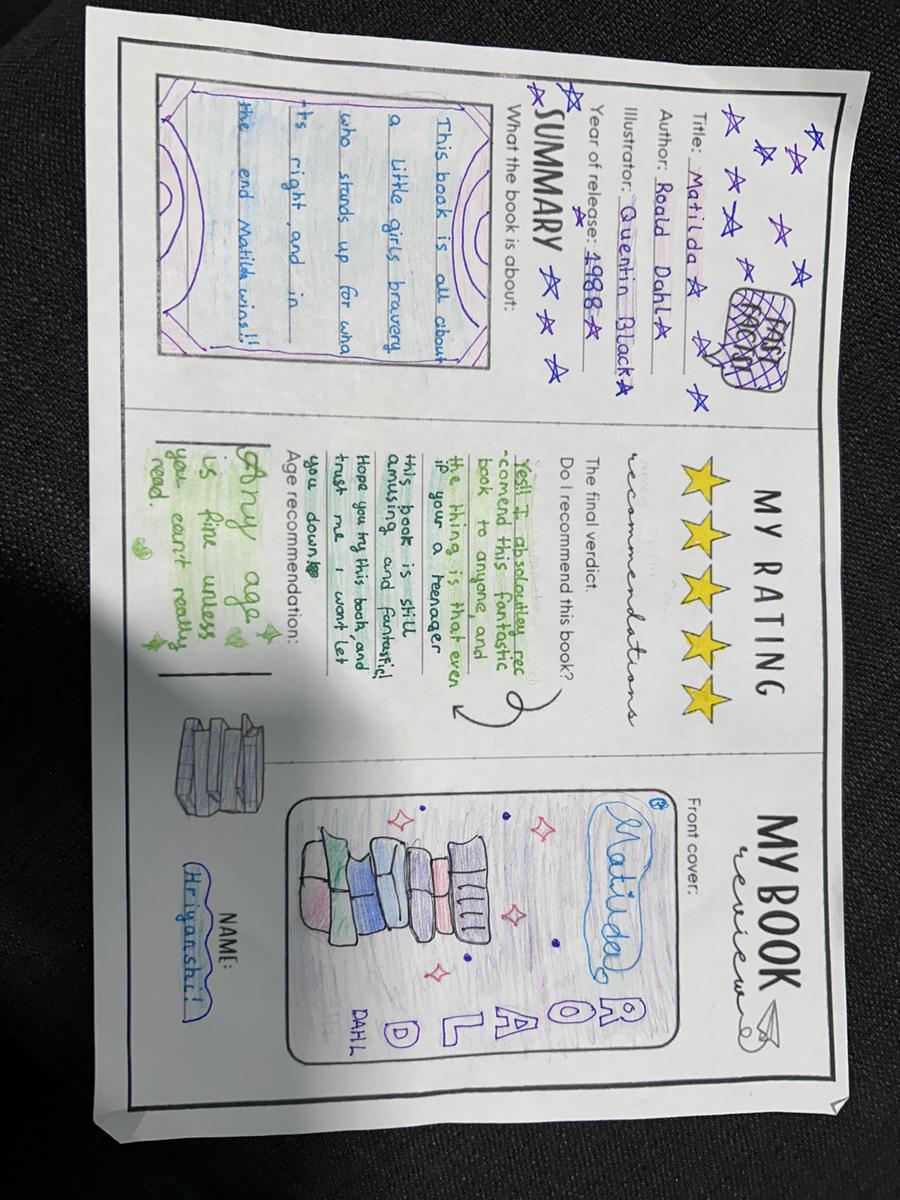 FAST
FACTS!
Title: Matilda
Author: Roald Dahl
Illustrator: Quentin Black
Year of release: 1988
SUMMARY
What the book is about:
This book is all about
a little girls bravery
who stands up for wha
ts right, and in
the end Matilda wins!!
MY RATING
recommendations
The final verdict.
Do I recommend this book?
Yes!! I absoloutley rec
-comend this fantastic
book to anyone, and
the thing is that even
if your a teenager
this book is still
amusing and fantastic!
Hope you try this book, and
trust me i wont let
you down!
Age recommendation:
Any age
is fine unless
you can't really
read.
MY BOOK
review
Front cover:
Matilda
ROALD
DAHL
NAME:
Hriyanshi!